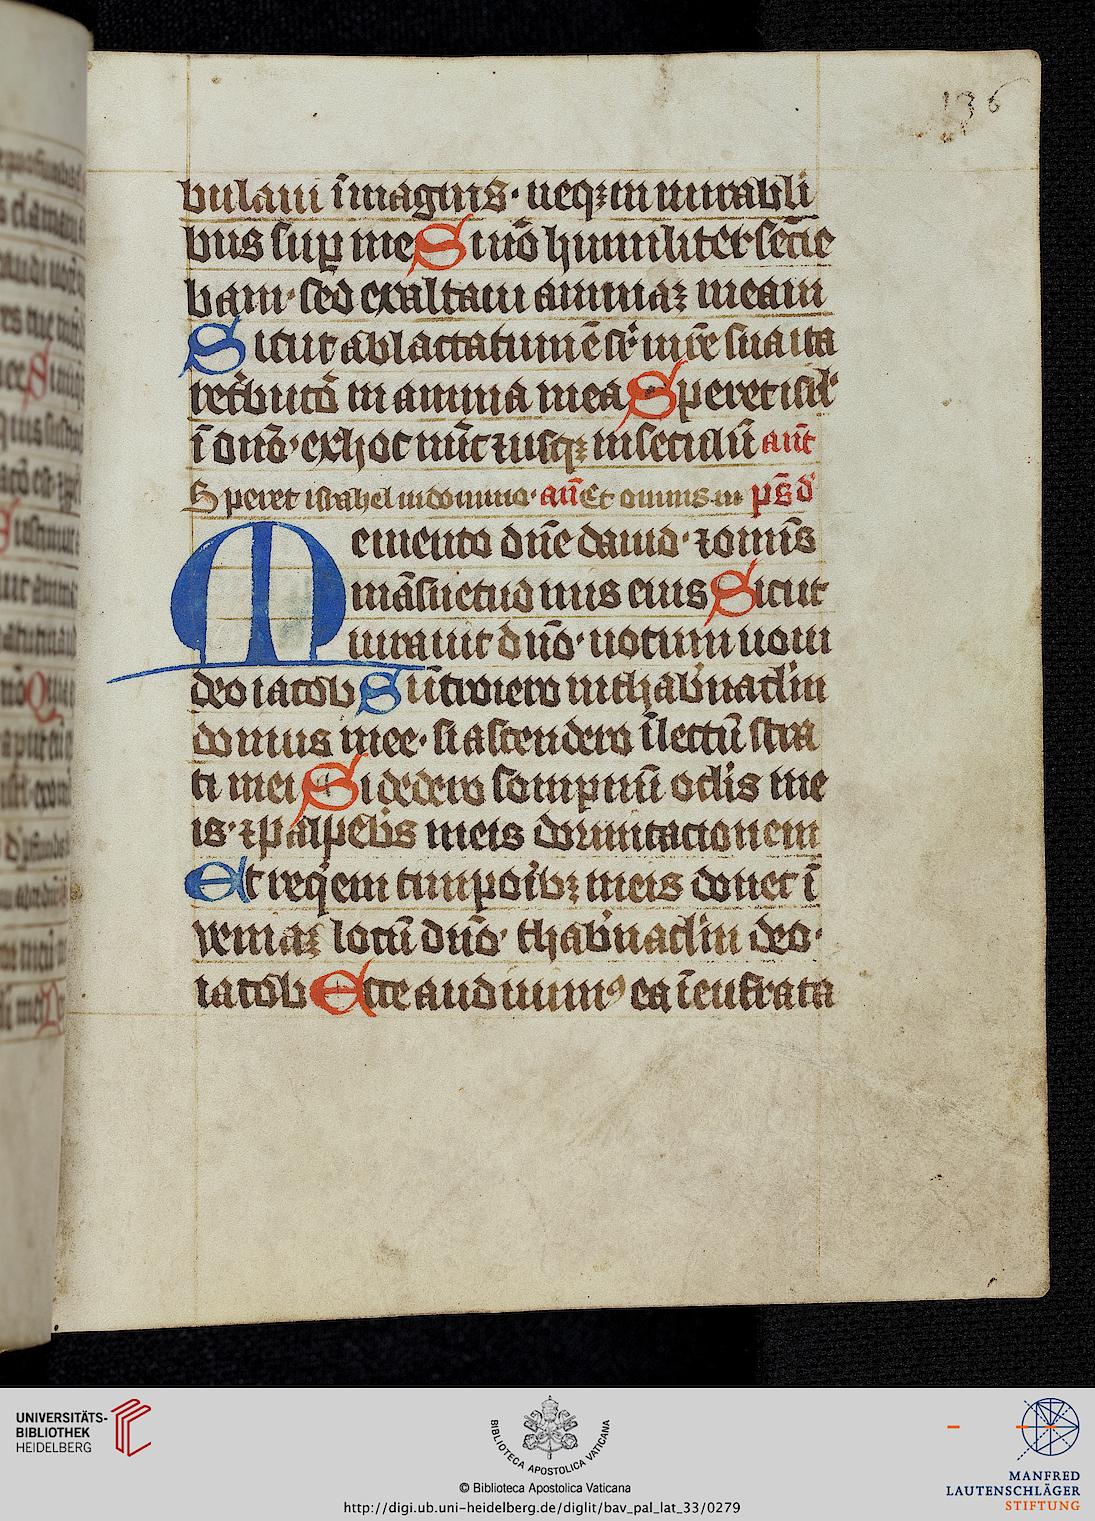 136
bulaui ī magnis· neqꝫ in mirabili
bus sup̱ me Si nō humiliter sēcie
bam· sed exaltaui animaꝫ meam
Sicut ablactatum ē sr̄ mr̄e sua ita
ret̄butō in anima mea Speret isrl̄
ī dn̄o· ex hoc nūc ⁊ usqꝫ in seculū ant̄
Speret israhel in domino· an̄ Et omnis m̄ ps̄ d̄
Memento dn̄e dauid· ⁊ omīs
māsuetudinis eius Sicut
iurauit dn̄o· uotum uoui
deo iacob Si ītroiero in thab̄nac̄lm
domus mee· si ascendero ī lectū stra
ti mei Si dedero sompnū oc̄lis me
is· ⁊ palpeb̄s meis dormitacionem
Et req̄em timpoībꝫ meis donec ī
ueniaꝫ locū dn̄o· thab̄nac̄lm deo·
iacob Ecce audiuimꝰ ea ī eufrata
UNIVERSITÄTS-
BIBLIOTHEK
HEIDELBERG
BIBLIOTECA APOSTOLICA VATICANA
© Biblioteca Apostolica Vaticana
http://digi.ub.uni-heidelberg.de/diglit/bav_pal_lat_33/0279
MANFRED
LAUTENSCHLÄGER
STIFTUNG